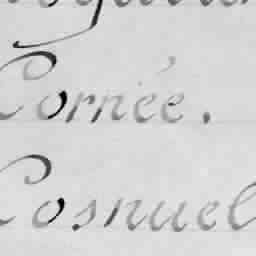 Cornée.
Cosnuel